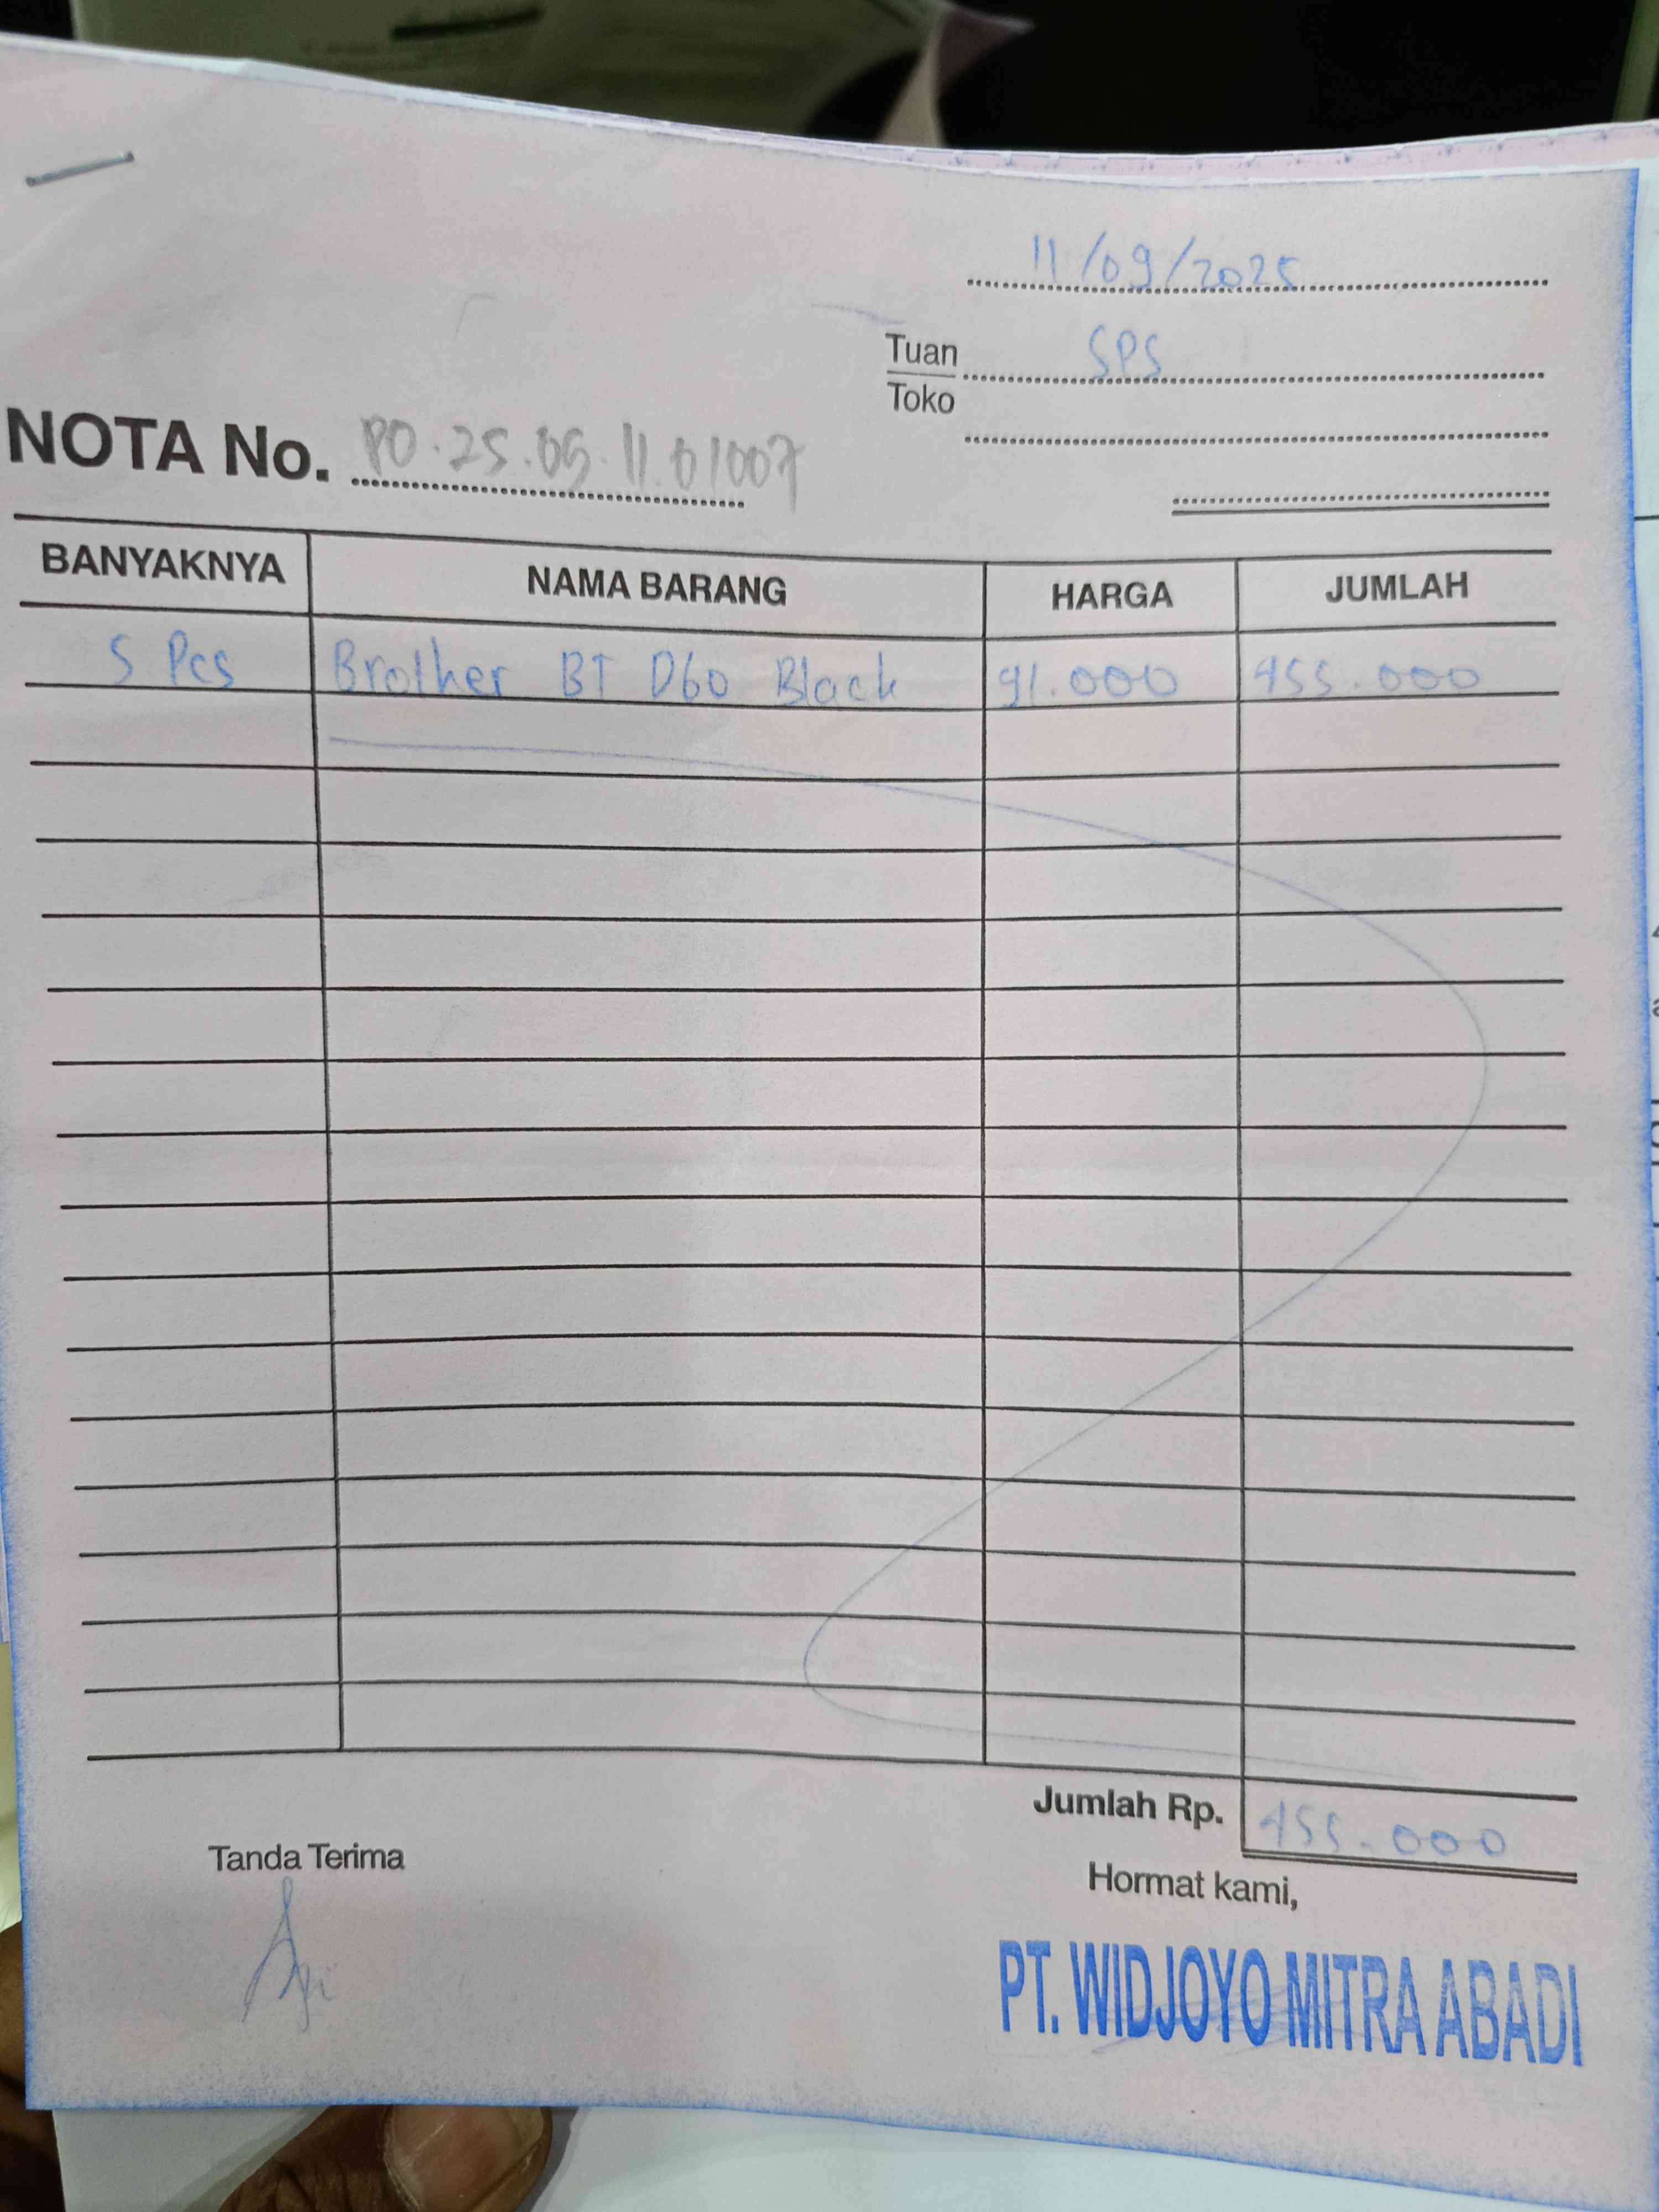 11/09/2025
Tuan SPS
Toko
NOTA No. PO.25.09.11.01007
BANYAKNYA NAMA BARANG HARGA JUMLAH
5 Pcs Brother BT D60 Black 91.000 455.000
Jumlah Rp. 455.000
Tanda Terima
Hormat kami,
PT. WIDJOYO MITRA ABADI